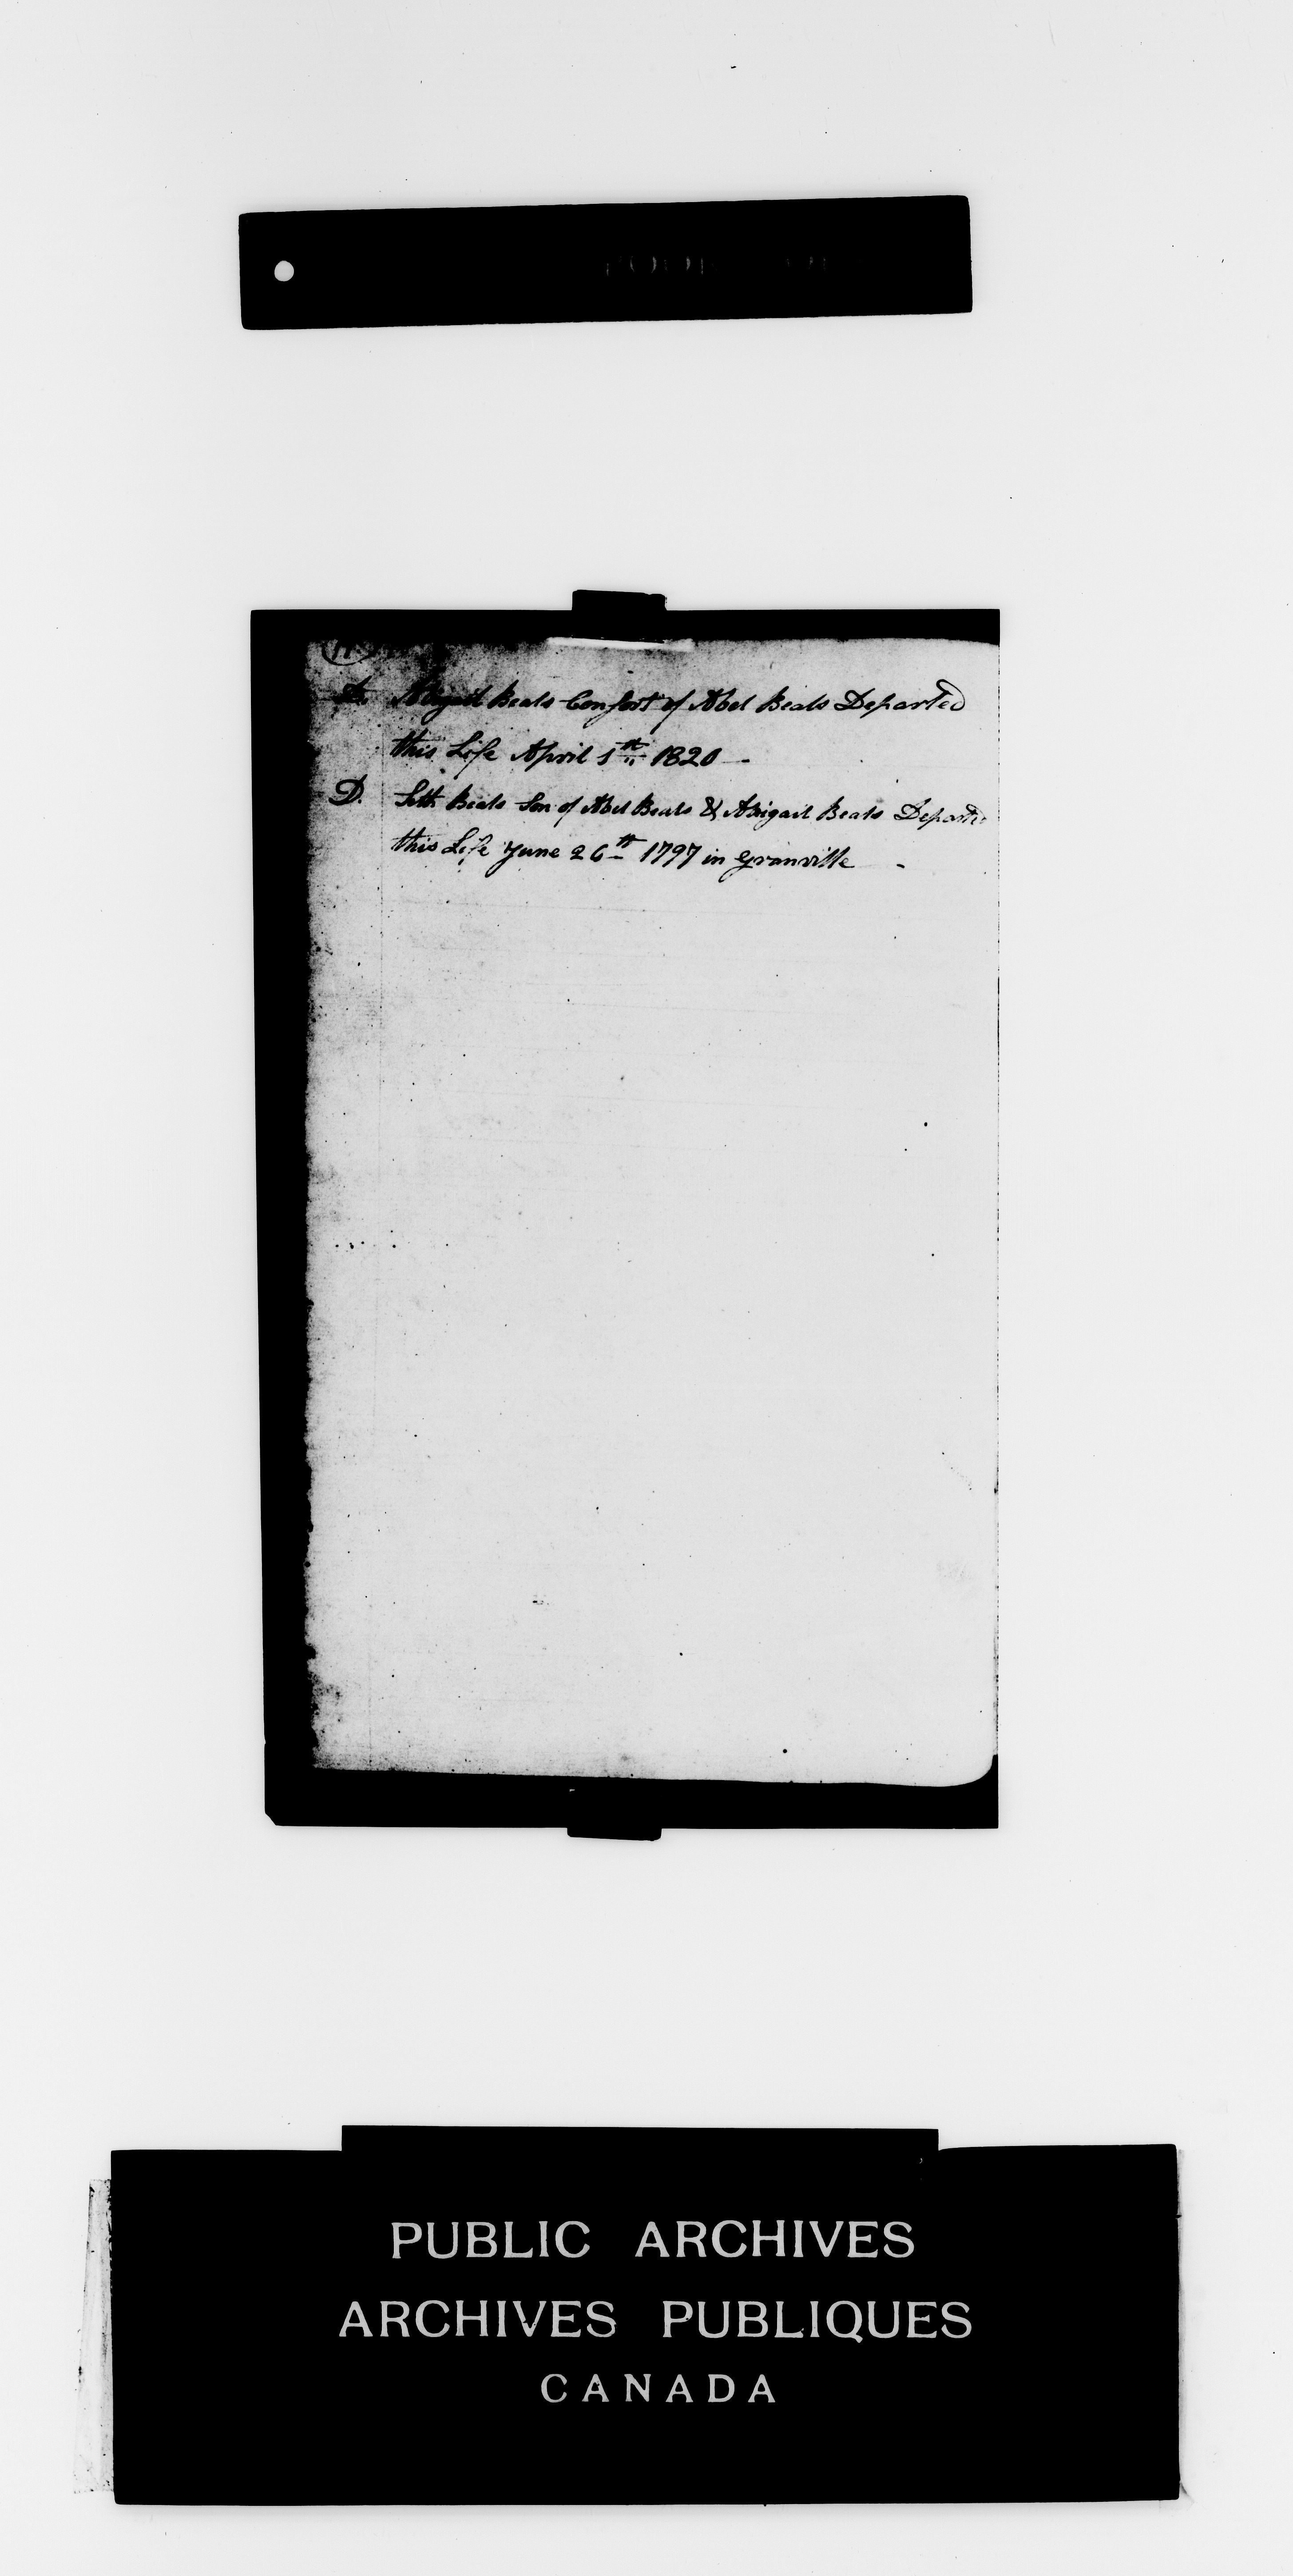 D. Abigail Beals Confort of Abel Beals Departed
this Life April 1th 1820 -
D. Seth Beals Son of Abel Beals & Abigail Beals Departed
this Life June 26th 1797 in Granville -
PUBLIC ARCHIVES
ARCHIVES PUBLIQUES
CANADA